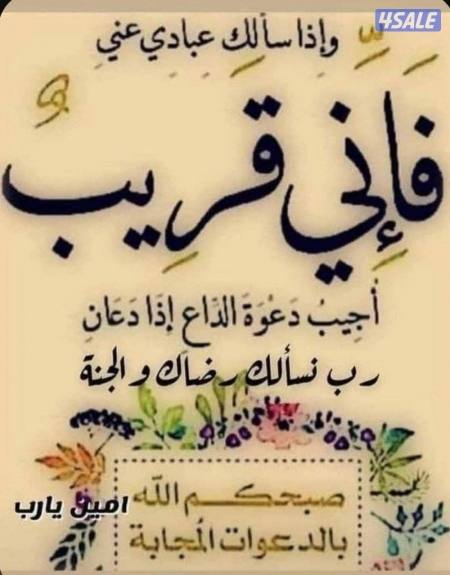 4SALE
وإذا سألك عبادي عني
فَإِنِّي قَرِيبٌ
أُجِيبُ دَعْوَةَ الدَّاعِ إِذَا دَعَانِ
رب نسألك رضاك و الجنة
صبحكم الله
امين يارب
بالدعوات المجابة